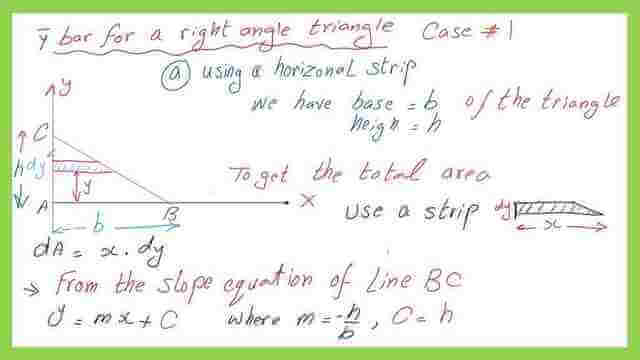 ȳ bar for a right angle triangle Case #1
(a) using a horizonal strip
we have base = b of the triangle
heign = h
y
C
h dy
y
To get the total area
A
B
x
b
Use a strip dy
x
dA = x. dy
→ From the slope equation of Line BC
y = mx + C where m = -h/b, C = h